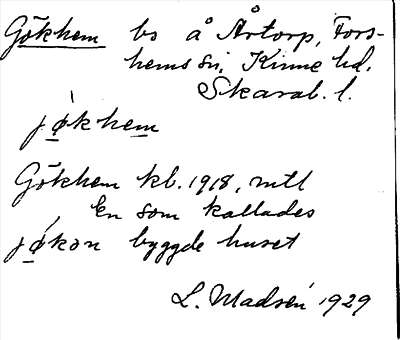 Gökhem bs å Årtorp, Fors-
hems sn, Kinne hd,
Skarab. l.
jø̱khem
Gökhem kb. 1918, mtl
En som kallades
jø̱kən byggde huset
L. Madsén 1929